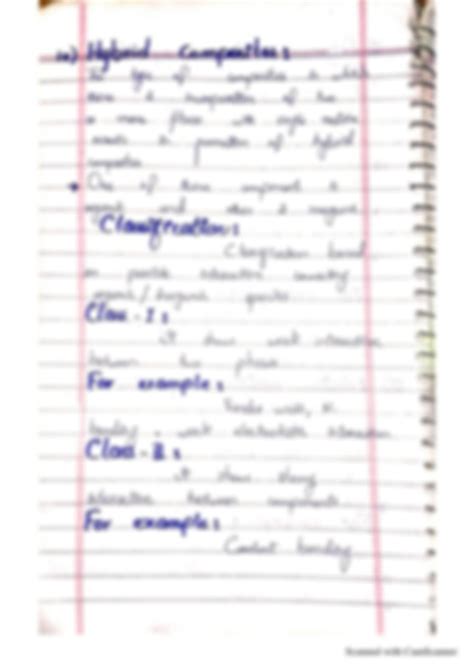 Hybrid Composites :
The type of composites in which
there is incorporation of two
or more fibers with single matrix
results in formation of hybrid
composites
One of these component is
organic and other is inorganic
Classification :
Classification based
on possible interaction connecting
organic / inorganic species
Class - I :
It shows weak interaction
between two phases
For example :
Vander walls, H-
bonding , weak electrostatic interaction
Class - II :
It shows strong
interaction between components
For example :
Covalent bonding
Scanned with CamScanner